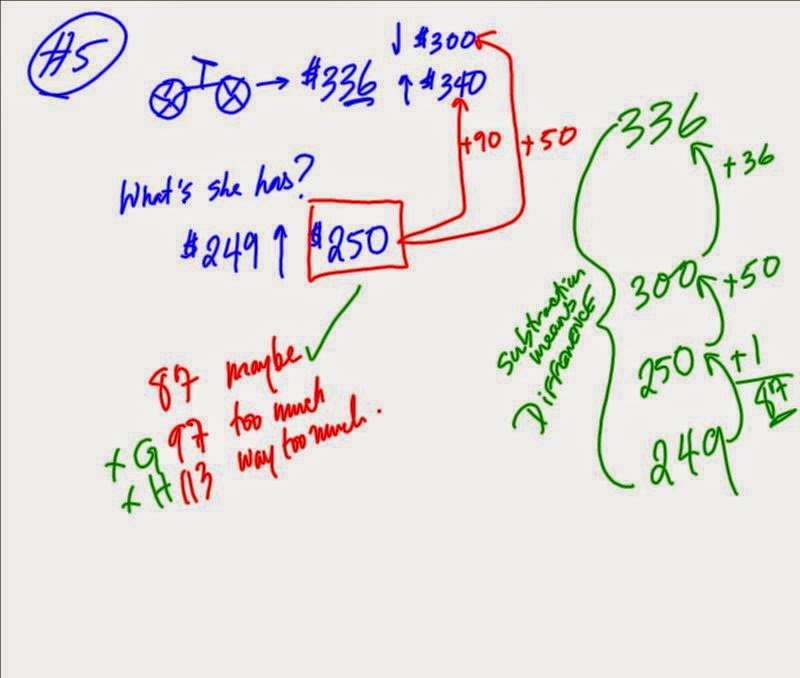 #5
$336
↓ $300
↑ $340
+90
+50
What's she has?
$249 ↑ $250
87 maybe
x G 97 too much
x H 113 way too much.
336
+36
300
+50
250
+1
87
249
Subtraction
means
DIFFERENCE